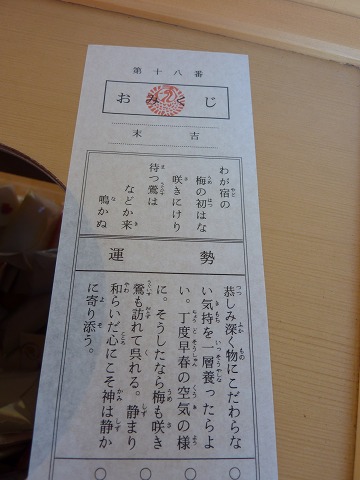 第十八番
おみくじ
末吉
わが宿の
梅の初はな
咲きにけり
待つ鶯は
などか来
鳴かぬ
運勢
恭しみ深く物にこだわらな
い気持を一層養ったらよ
い。丁度早春の空気の様
に。そうしたなら梅も咲き
鶯も訪れて呉れる。静まり
和らいだ心にこそ神は静か
に寄り添う。